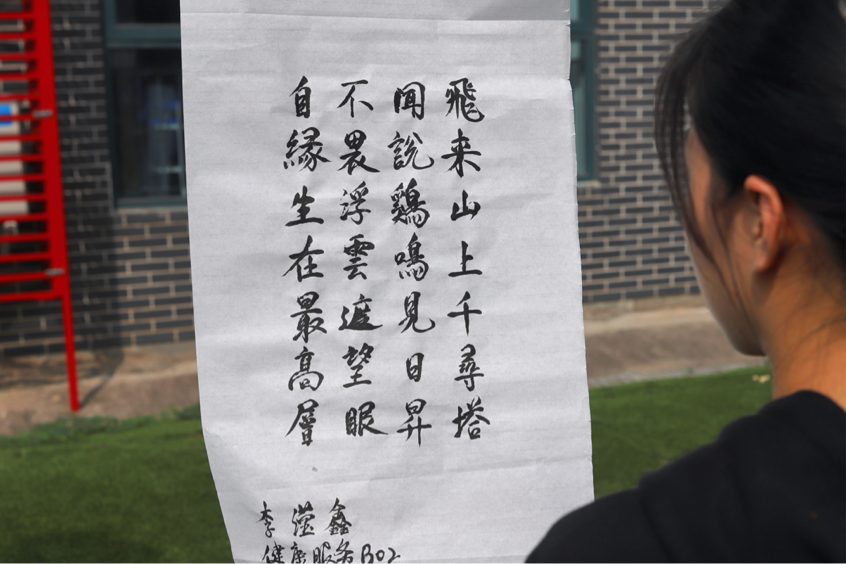 飛来山上千尋塔
聞說鷄鳴見日昇
不畏浮雲遮望眼
自緣生在最高層
李滢鑫
健康服务B02